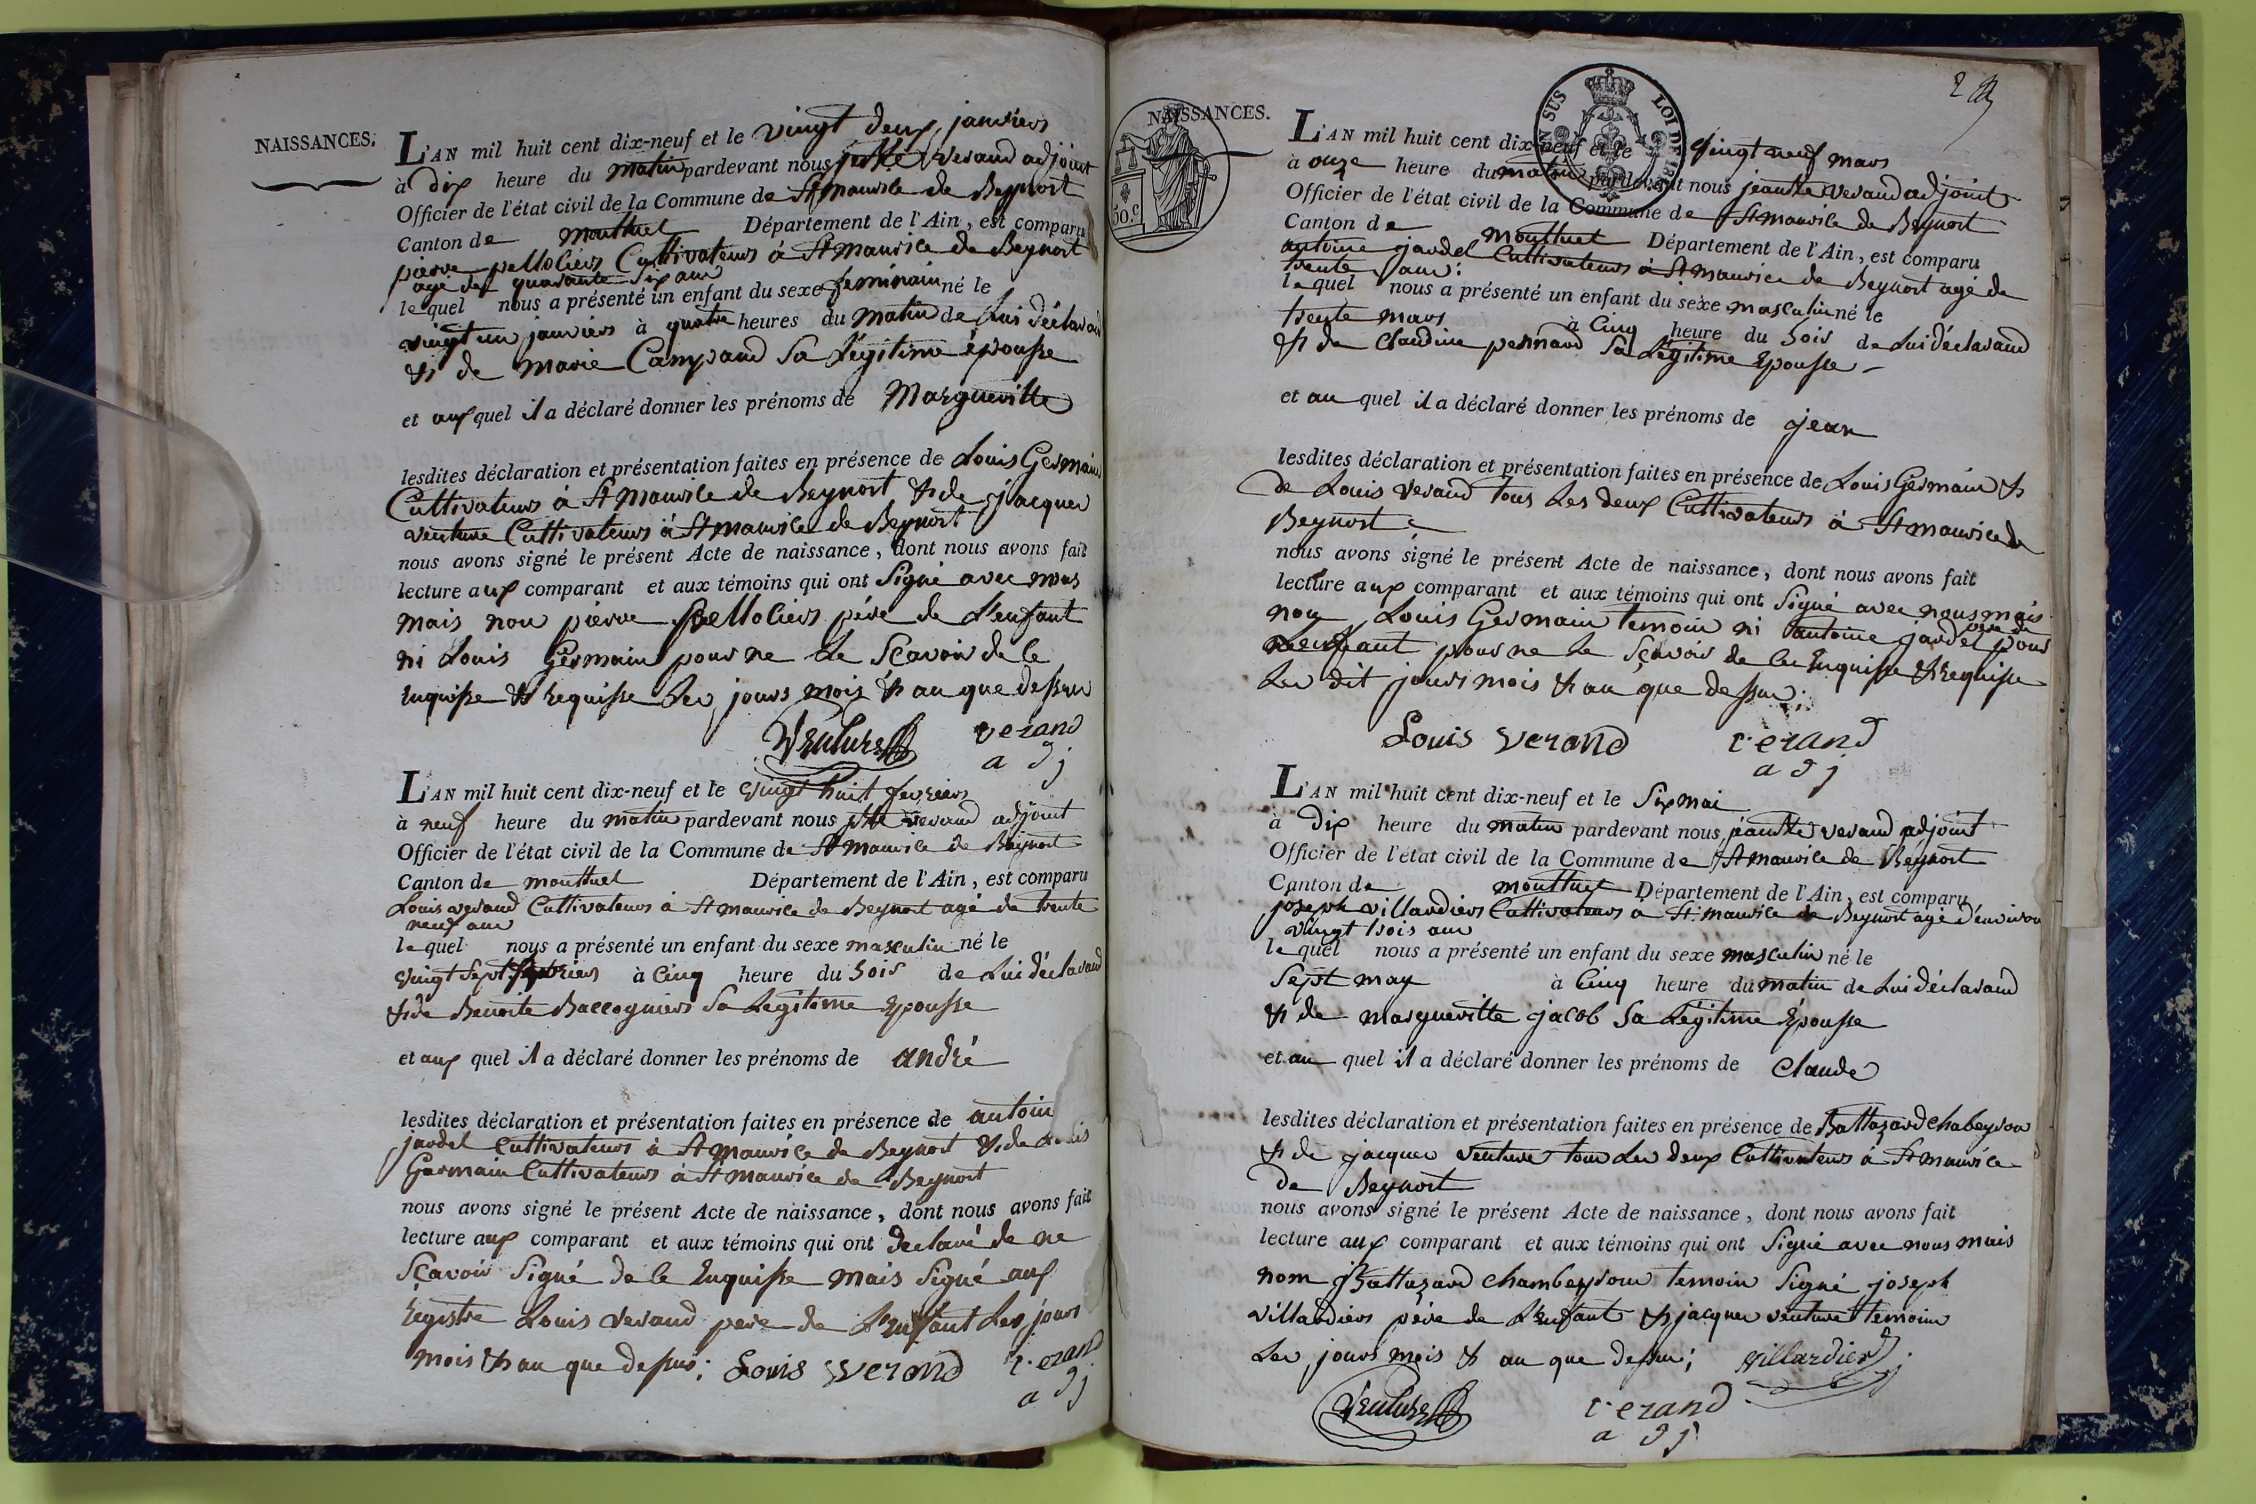 NAISSANCES.
L'AN mil huit cent dix-neuf et le vingt deux janviers
à dix heure du matin pardevant nous verand adjoint
Officier de l'état civil de la Commune de St maurice de Beynost
Canton de montluel Département de l'Ain, est comparu
pierre pelloliers Cultivateurs à St maurice de Beynost
agé de quarante Six ans
le quel nous a présenté un enfant du sexe feminain né le
vingt un janviers à quatre heures du matin de Lui déclarand
& de marie Campand Sa Légitime épousse
et aux quel il a déclaré donner les prénoms de Margueritte
lesdites déclaration et présentation faites en présence de Louis Germain
Cultivateurs à St maurice de Beynost & de jacques
venture Cultivateurs à St maurice de Beynost
nous avons signé le présent Acte de naissance, dont nous avons fait
lecture aux comparant et aux témoins qui ont Signé avec nous
mais non pierre pelloliers pére de L'enfant
ni Louis Germain pour ne Le Sçavoir de le
Enquisse & Requisse Les jours mois & an que dessus
Venture verand
adj
L'AN mil huit cent dix-neuf et le vingt huit fevriers
à neuf heure du matin pardevant nous verand adjoint
Officier de l'état civil de la Commune de St maurice de Beynost
Canton de montluel Département de l'Ain, est comparu
Louis verand Cultivateurs à St maurice de Beynost agé de trente
neuf ans
le quel nous a présenté un enfant du sexe masculin né le
vingt Sept fevriers à Cinq heure du Soir de Lui déclarand
& de Benoite Baccogniers Sa Legitime Epousse
et aux quel il a déclaré donner les prénoms de andré
lesdites déclaration et présentation faites en présence de antoin
jardel Cultivateurs à St maurice de Beynost & de Louis
Germain Cultivateurs à St maurice de Beynost
nous avons signé le présent Acte de naissance, dont nous avons fait
lecture aux comparant et aux témoins qui ont declaré de ne
Sçavoir Signé de le Enquisse mais Signé aux
Registre Louis verand pere de L'enfant Les jours
mois & an que dessus; Louis verand verand
adj
NAISSANCES.
50. C
LOI DE
L'AN mil huit cent dix-neuf et le vingt neuf mars
à onze heure du matin pardevant nous jean verand adjoint
Officier de l'état civil de la Commune de St maurice de Beynost
Canton de montluel Département de l'Ain, est comparu
antoine jardel Cultivateurs à St maurice de Beynost agé de
trente ans;
le quel nous a présenté un enfant du sexe masculin né le
trente mars à Cinq heure du Soir de Lui déclarand
& de Claudine pernand Sa Légitime Epousse
et au quel il a déclaré donner les prénoms de jean
lesdites déclaration et présentation faites en présence de Louis Germain &
de Louis verand tous Les deux Cultivateurs à St maurice de
Beynost
nous avons signé le présent Acte de naissance, dont nous avons fait
lecture aux comparant et aux témoins qui ont Signé avec nous mais
non Louis Germain temoin ni antoine jardel pére de
L'enfant pour ne Le Sçavoir de les Enquisse & Requisse
Les dit jours mois & an que dessus;
Louis verand verand
adj
L'AN mil huit cent dix-neuf et le Six mai
à Dix heure du matin pardevant nous jean verand adjoint
Officier de l'état civil de la Commune de St maurice de Beynost
Canton de montluel Département de l'Ain, est comparu
joseph villardiers Cultivateurs à St maurice de Beynost agé d'environ
vingt trois ans
le quel nous a présenté un enfant du sexe masculin né le
Sept may à Cinq heure du matin de Lui déclarand
& de margueritte jacob Sa Légitime Epousse
et au quel il a déclaré donner les prénoms de Claude
lesdites déclaration et présentation faites en présence de Baltazard Chabeyron
& de jacques venture tous Les deux Cultivateurs à St maurice
de Beynost
nous avons signé le présent Acte de naissance, dont nous avons fait
lecture aux comparant et aux témoins qui ont Signé avec nous mais
nom Baltazard temoin Signé joseph
villardiers pére de L'enfant & jacques venture temoin
Les jours mois & an que dessus; villardier
Venture verand
adj